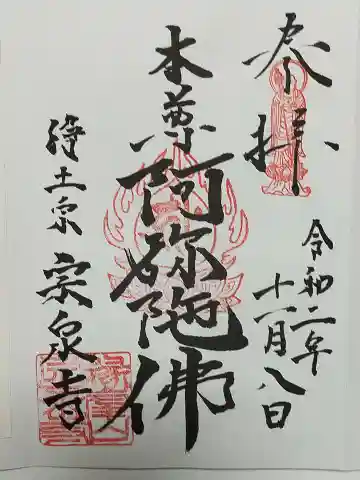 奉拝
令和二年
十一月八日
本尊阿弥陀佛
浄土宗 宗泉寺